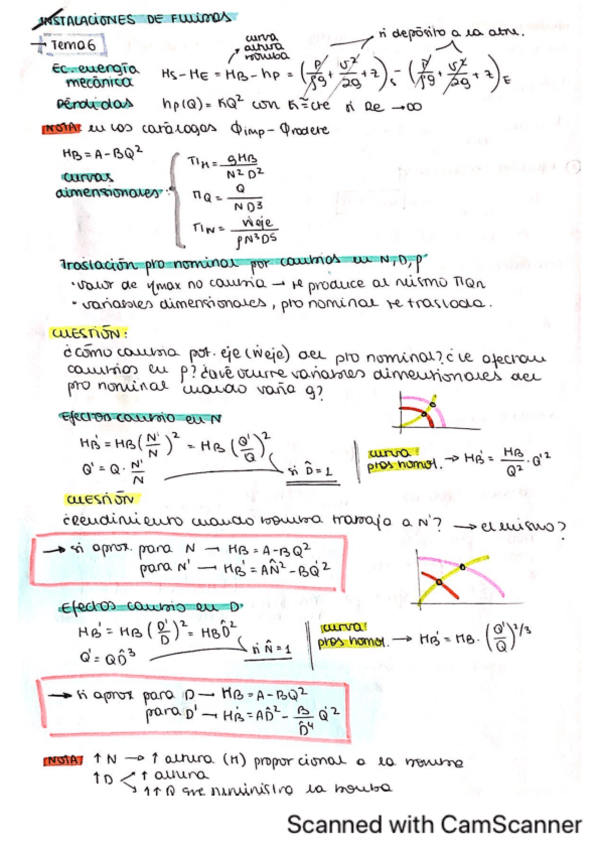 INSTALACIONES DE FLUIDOS
→ Tema 6
curva altura bomba
si depósito a la atm.
Ec. energía mecánica
HS - HE = HB - hp = (p/ρg + v²/2g + z)S - (p/ρg + v²/2g + z)E
Pérdidas
hp(Q) = KQ² con K ≅ cte si Re → ∞
NOTA: en los catálogos Φimp - Φrodete
HB = A - BQ²
curvas adimensionales:
ΠH = gHB / N²D²
ΠQ = Q / ND³
ΠẆ = Ẇeje / ρN³D⁵
Traslación pto nominal por cambios en N, D, ρ
· valor de ηmax no cambia → se produce al mismo ΠQn
· variables dimensionales, pto nominal se traslada.
CUESTIÓN:
¿cómo cambia pot. eje (Ẇeje) del pto nominal? ¿le afectan
cambios en ρ? ¿qué ocurre variables dimensionales del
pto nominal cuando varía g?
Efectos cambio en N
HB' = HB (N'/N)² = HB (Q'/Q)²
Q' = Q · N'/N
si D̂ = 1
curva ptos homol. → HB' = HB/Q² · Q'²
CUESTIÓN
¿Rendimiento cuando bomba trabaja a N'? → el mismo?
→ si aprox. para N → HB = A - BQ²
para N' → HB' = AN̂² - BQ'²
Efectos cambio en D.
HB' = HB (D'/D)² = HBD̂²
Q' = QD̂³
si N̂ = 1
curva ptos homol. → HB' = HB · (Q'/Q)^2/3
→ si aprox para D → HB = A - BQ²
para D' → HB' = AD̂² - B/D̂⁴ Q'²
NOTA: ↑N → ↑ altura (H) proporcional a la bomba
↑D < ↑ altura
↑↑Q que suministra la bomba
Scanned with CamScanner